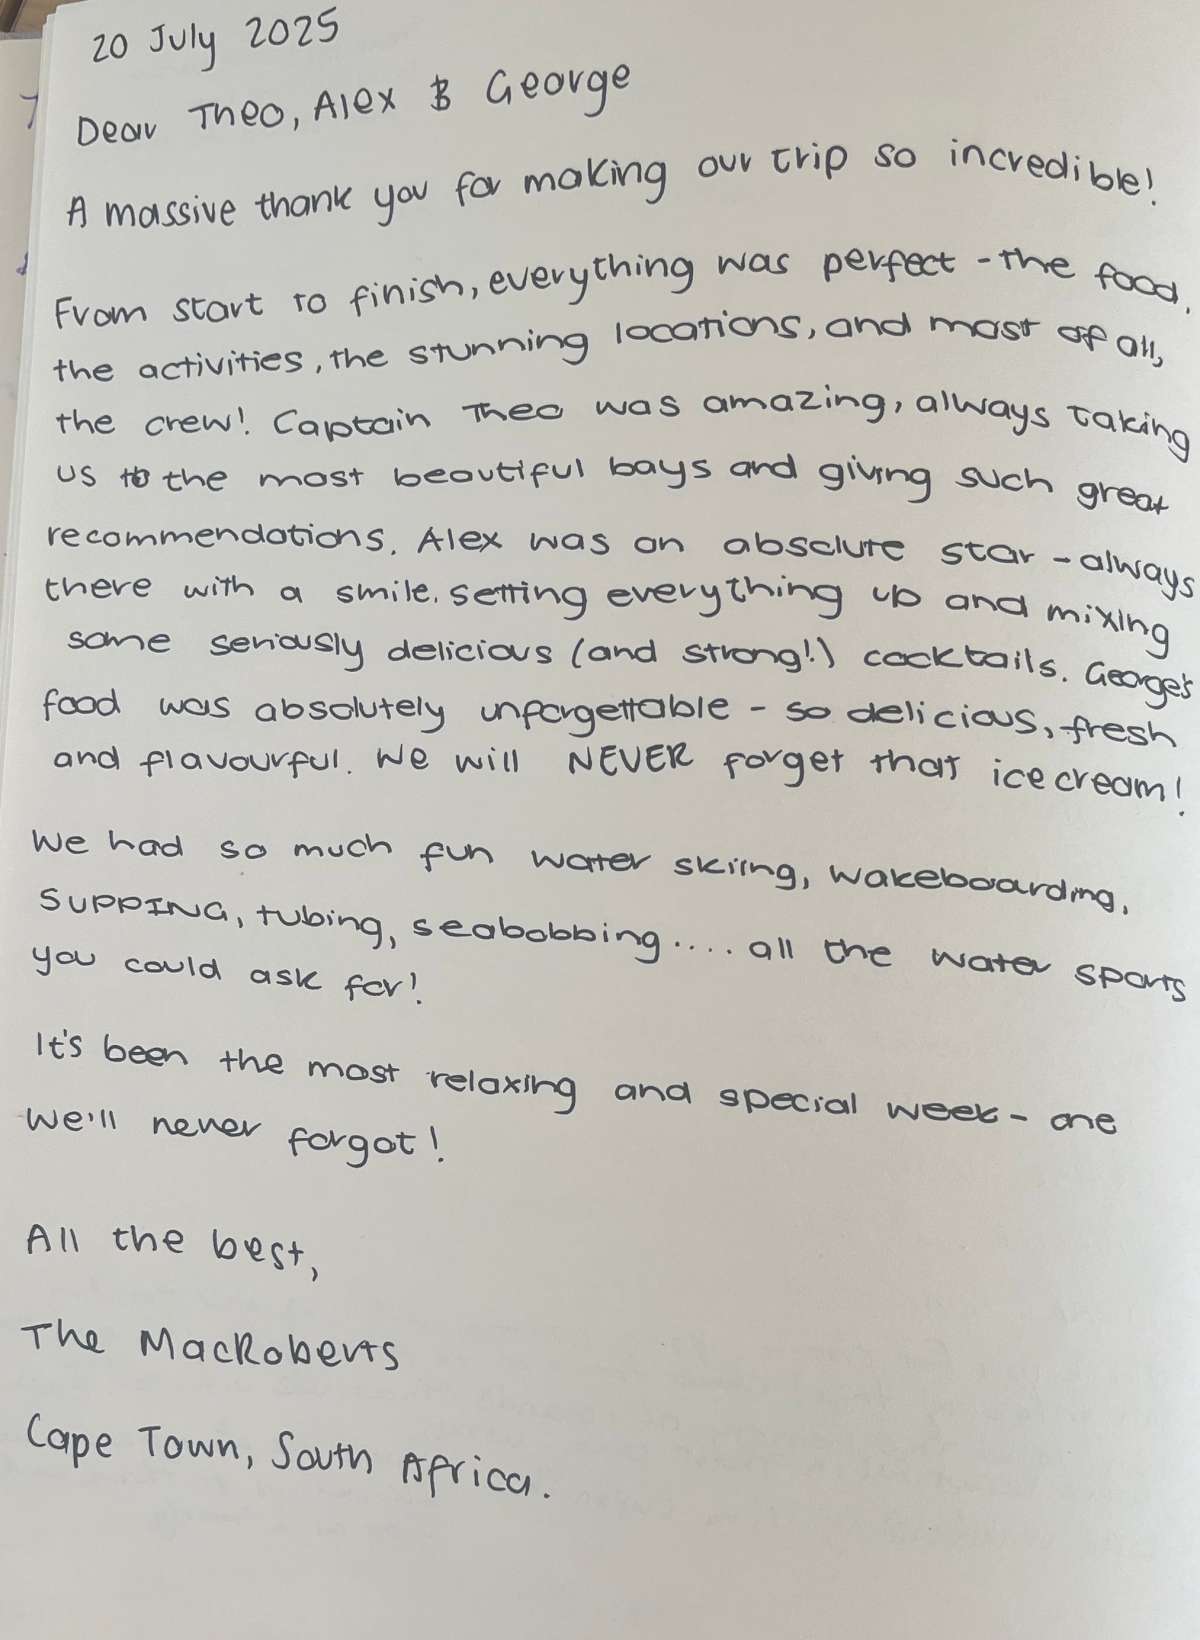 20 July 2025
Dear Theo, Alex & George
A massive thank you for making our trip so incredible!
From start to finish, everything was perfect - the food,
the activities, the stunning locations, and most of all,
the crew! Captain Theo was amazing, always taking
us to the most beautiful bays and giving such great
recommendations. Alex was an absolute star - always
there with a smile, setting everything up and mixing
some seriously delicious (and strong!) cocktails. George's
food was absolutely unforgettable - so delicious, fresh
and flavourful. We will NEVER forget that ice cream!
We had so much fun water skiing, wakeboarding,
SUPPING, tubing, seabobbing.... all the water sports
you could ask for!
It's been the most relaxing and special week - one
we'll never forgot!
All the best,
The MacRoberts
Cape Town, South Africa.